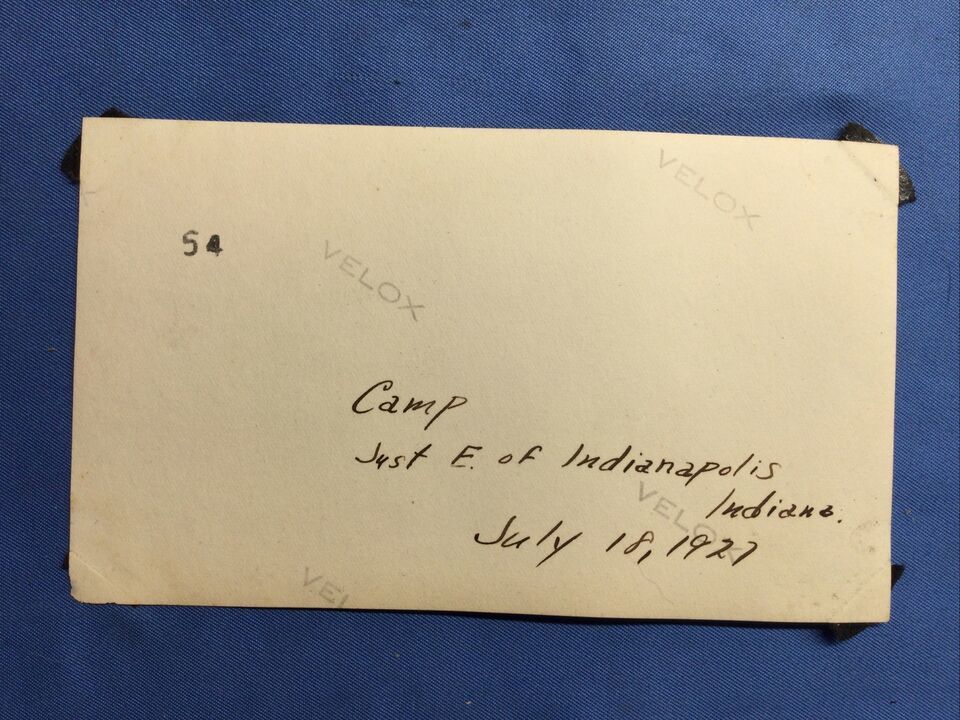 VELOX
54
VELOX
Camp
Just E. of Indianapolis
Indiana.
VELOX
July 18, 1927
VEL